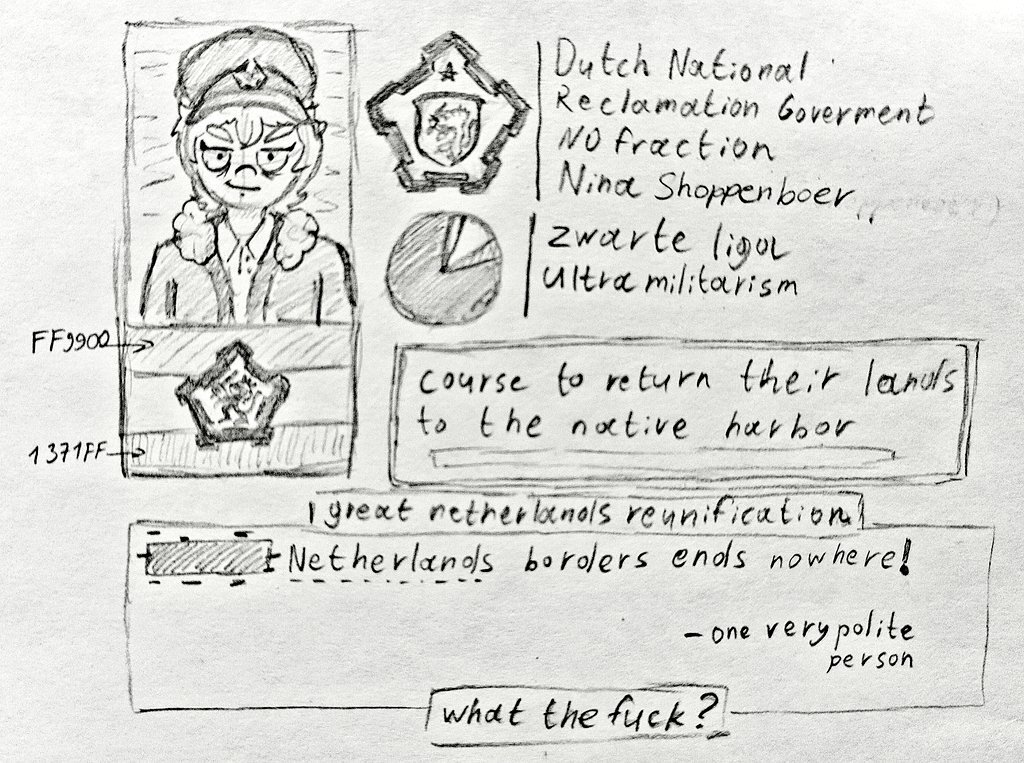 Dutch National
Reclamation Goverment
NO fraction
Nina Shoppenboer
zwarte liga
Ultra militarism
FF9900
1371FF
course to return their lands
to the native harbor
great netherlands reunification
Netherlands borders ends nowhere!
- one very polite
person
what the fuck?